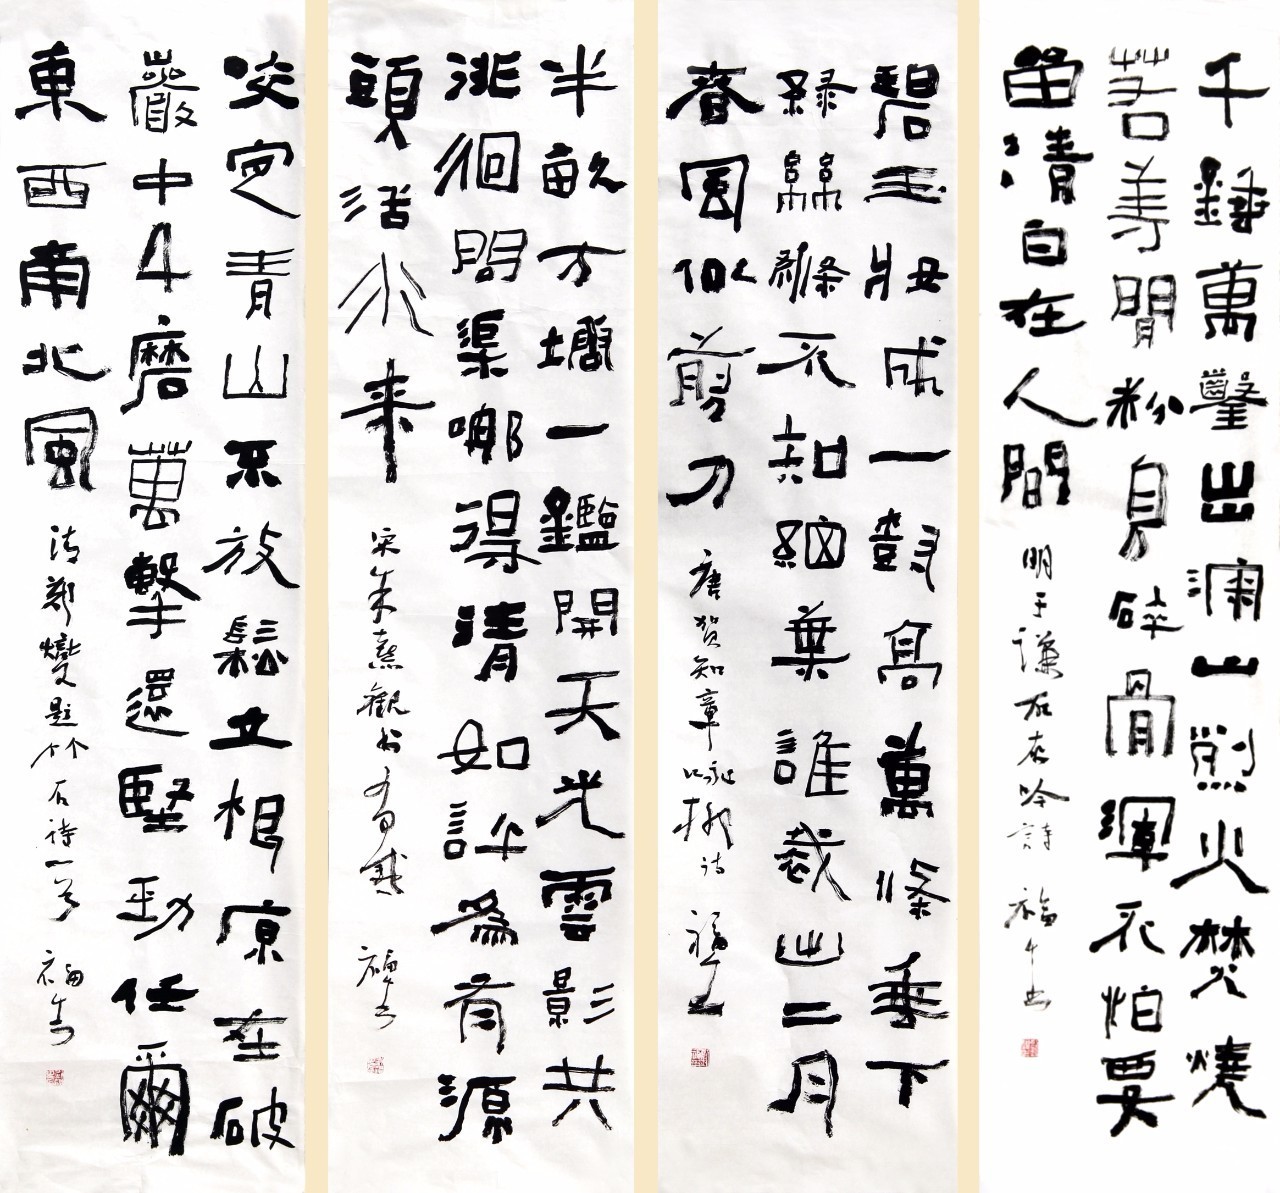 千錘萬鑿出深山烈火焚燒
若等閒粉身碎骨渾不怕要
留清白在人間 明于谦石灰吟詩
碧玉妝成一樹高萬條垂下
綠絲絛不知細葉誰裁出二月
春風似剪刀 唐贺知章咏柳诗
半畝方塘一鑑開天光雲影共
徘徊問渠哪得清如許為有源
頭活水来 宋朱熹觀书有感
咬定青山不放鬆立根原在破
巖中千磨萬擊還堅勁任爾
東西南北風 清郑燮題竹石诗一首